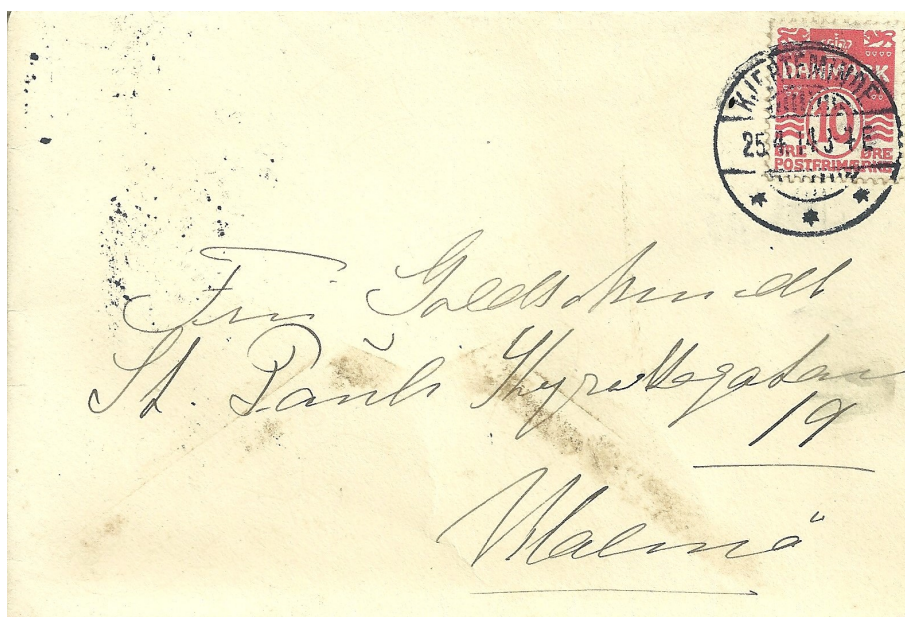 DANMARK
KJERTEMINDE
10
25.4.14.3-4 E
ØRE ØRE
POSTFRIMÆRKE
Fru Goldschmidt
St. Pauli Kyrkogatan
19
Malmö